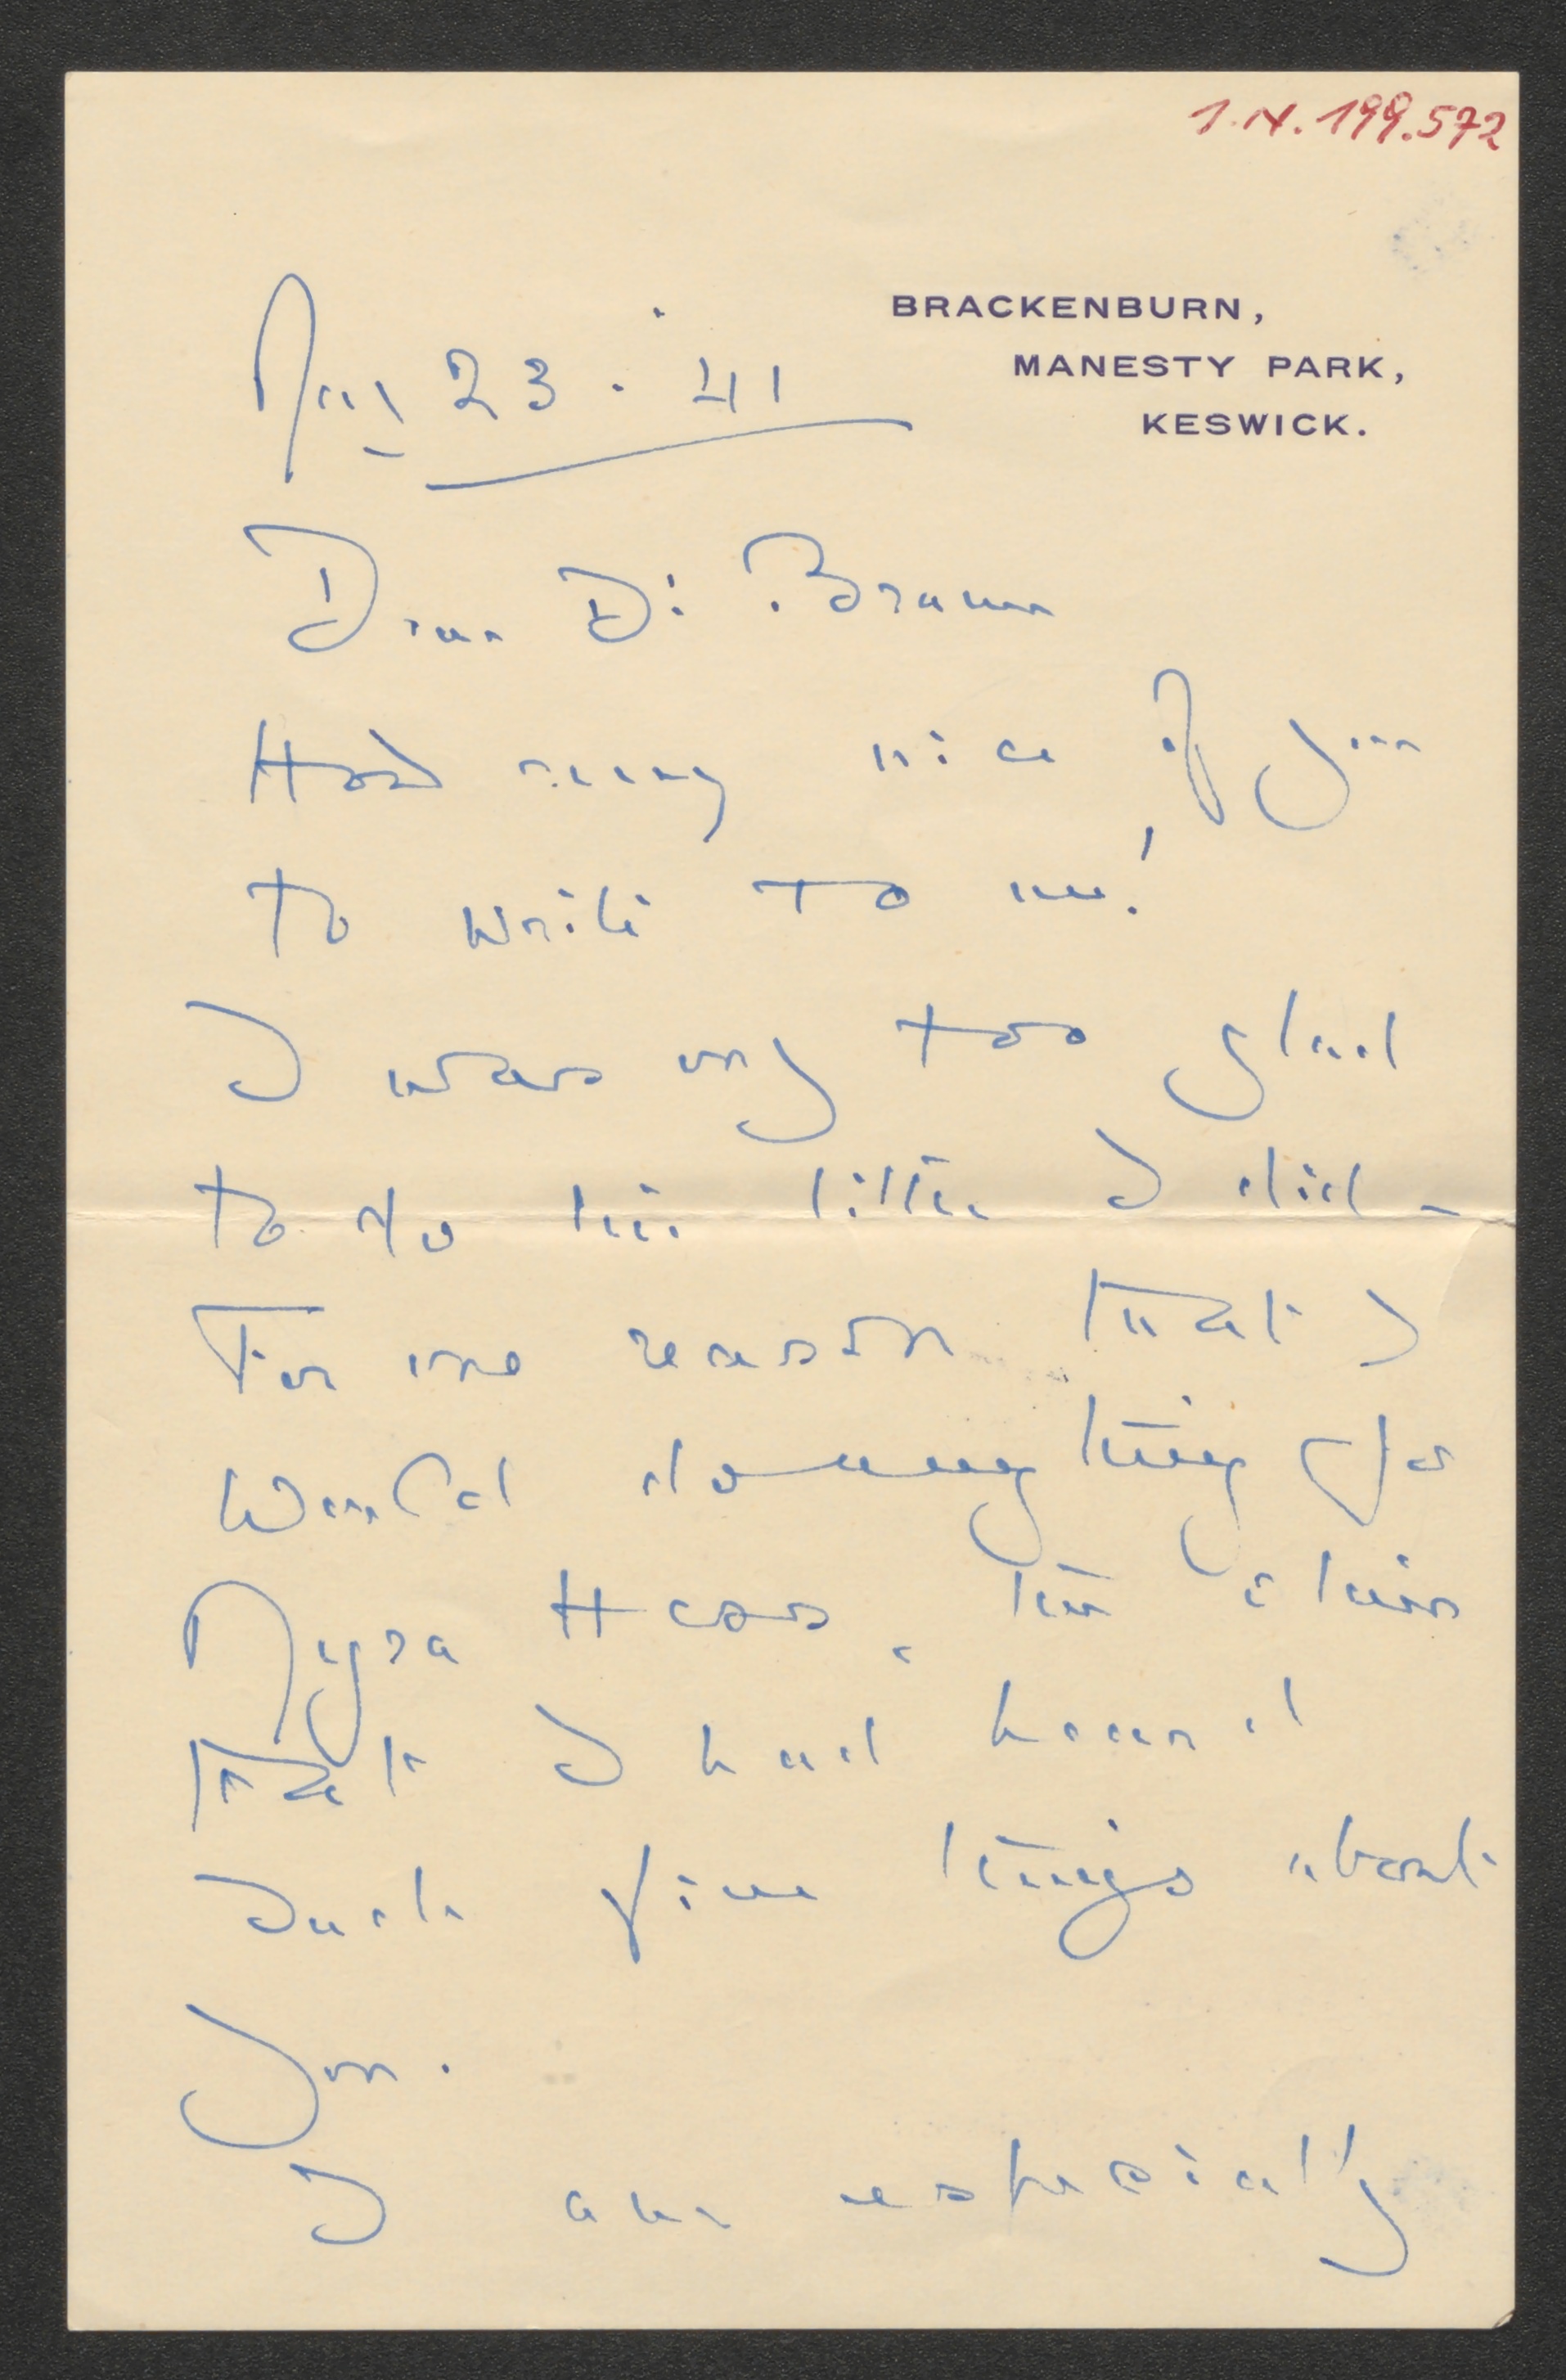 1.N. 199.572
BRACKENBURN,
MANESTY PARK,
KESWICK.
23 . 41
Dear Dr Braun
How very nice of you
to write to me!
I was only too glad
to do the little I did -
For one reason that I
would do anything for
Myra Hess,
that I had heard
such fine things about
you.
I am especially